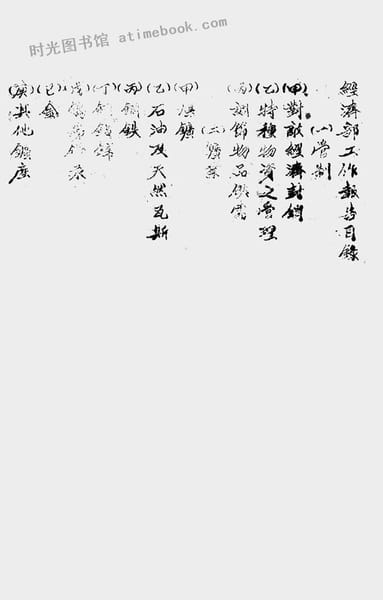 时光图书馆 atimebook.com
經濟部工作報告目錄
(一)管制
(甲)對敵經濟封鎖
(乙)特種物資之管理
(丙)調節物品供需
(二)礦業
(甲)煤鑛
(乙)石油及天然瓦斯
(丙)鋼鐵
(丁)銅鉛鋅
(戊)
(己)金
(庚)其他鑛產